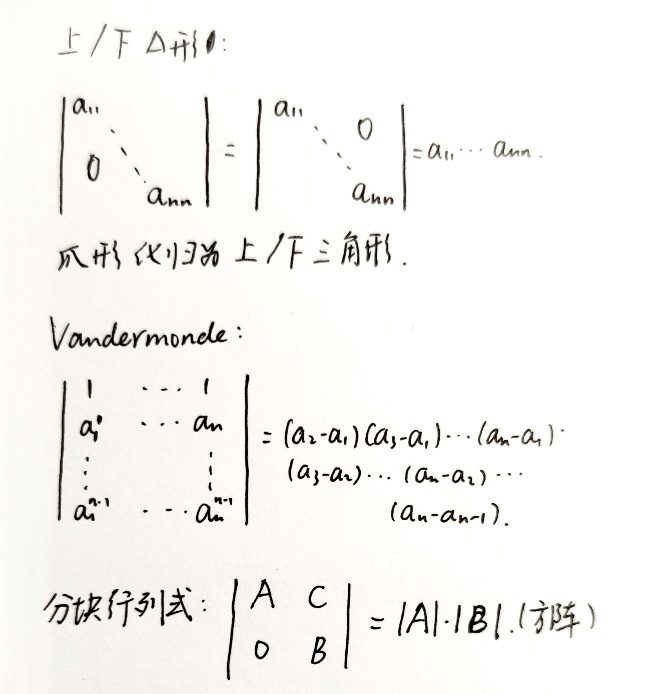 上/下△形:
| a₁₁ ⋱ aₙₙ 0 | = | a₁₁ ⋱ aₙₙ 0 | = a₁₁ ⋯ aₙₙ.
爪形化归为上/下三角形.
Vandermonde:
| 1 ⋯ 1 |
| a₁ ⋯ aₙ | = (a₂-a₁)(a₃-a₁)⋯(aₙ-a₁)·
⋮ ⋮ (a₃-a₂)⋯(aₙ-a₂)⋯
| a₁ⁿ⁻¹ ⋯ aₙⁿ⁻¹ | (aₙ-aₙ₋₁).
分块行列式: | A C |
| 0 B | = |A|·|B|.(方阵)